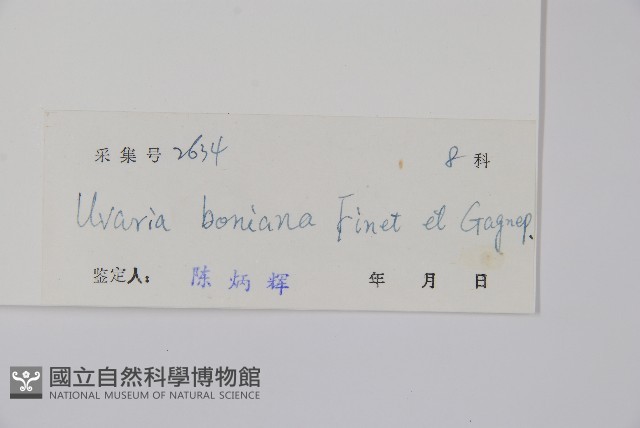 采集号 2634 8 科
Uvaria boniana Finet et Gagnep.
鉴定人: 陈炳辉 年 月 日
國立自然科學博物館
NATIONAL MUSEUM OF NATURAL SCIENCE